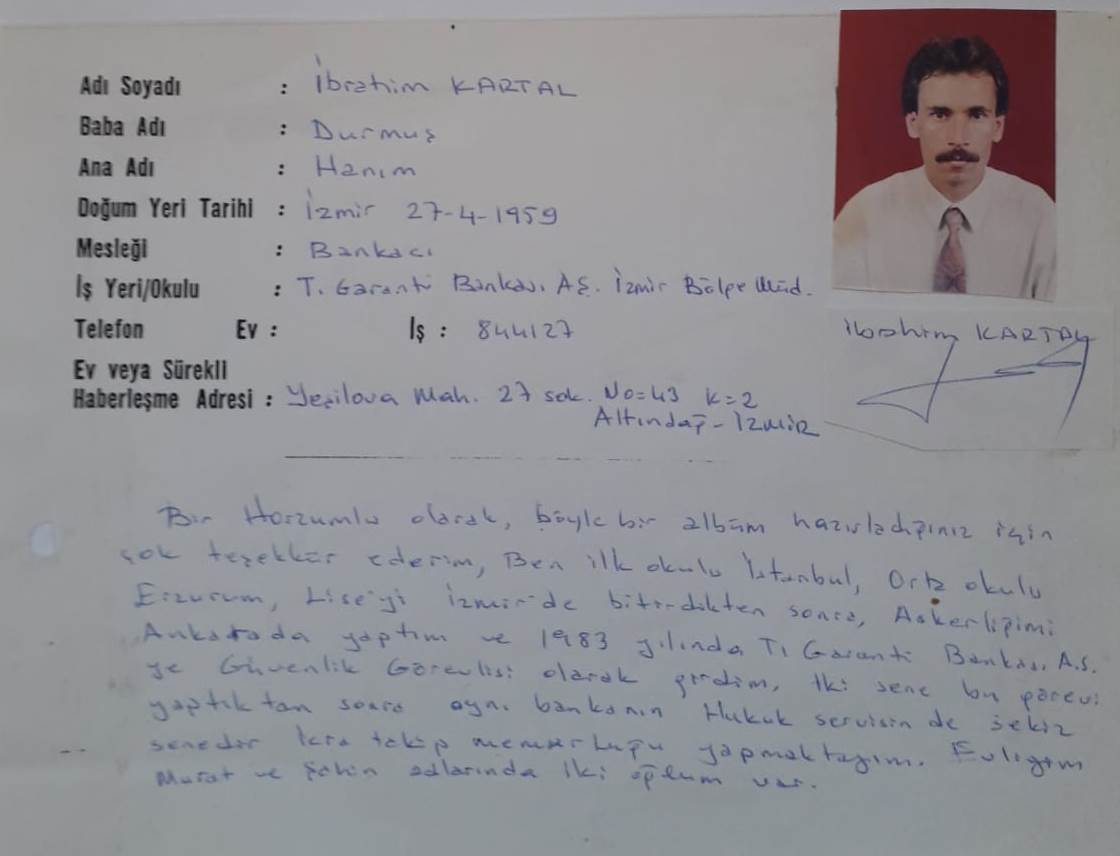 Adı Soyadı : İbrahim KARTAL
Baba Adı : Durmuş
Ana Adı : Hanım
Doğum Yeri Tarihi : İzmir 27-4-1959
Mesleği : Bankacı
İş Yeri/Okulu : T. Garanti Bankası AŞ. İzmir Bölge Müd.
Telefon Ev : İş : 844127
Ev veya Sürekli
Haberleşme Adresi : Yeşilova Mah. 27 sok. No=43 K=2
Altındağ - İZMİR
İbrahim KARTAL
Bir Horzumlu olarak, böyle bir albüm hazırladığınız için
çok teşekkür ederim, Ben ilk okulu İstanbul, Orta okulu
Erzurum, Lise'yi İzmir'de bitirdikten sonra, Askerliğimi
Ankarada yaptım ve 1983 yılında T. Garanti Bankası A.S.
ye Güvenlik Görevlisi olarak girdim, İki sene bu görevi
yaptıktan sonra aynı bankanın Hukuk servisin de sekiz
senedir İcra takip memurluğu yapmaktayım. Evliyim
Murat ve Şahin adlarında iki oğlum var.